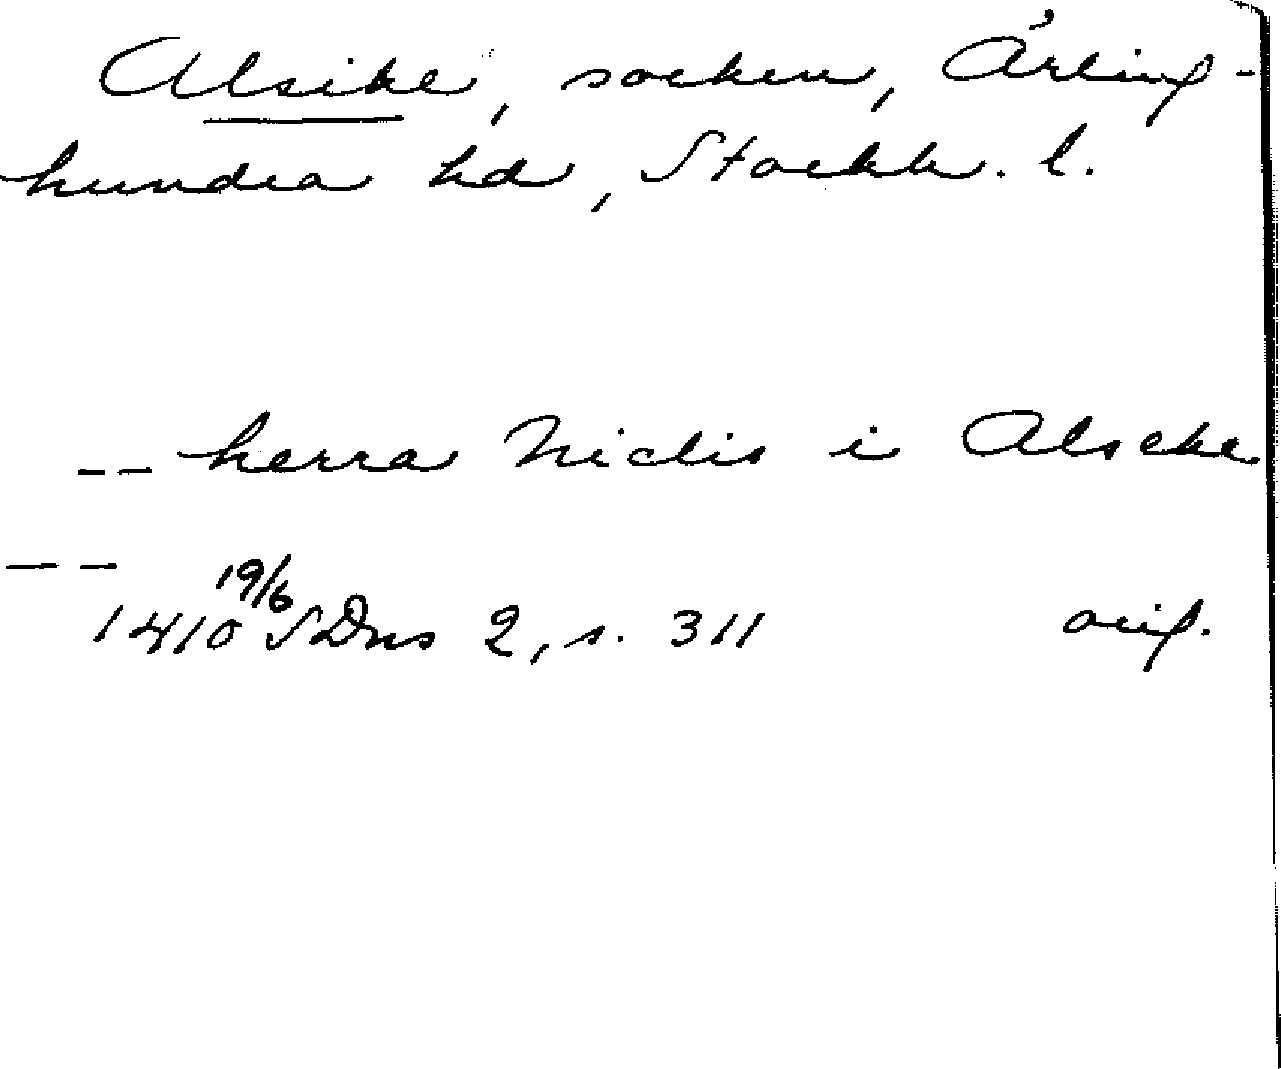 Alsike, socken, Ärling-
hundra hd, Stockh. l.
-- herra Niclis i Alseke
-- 
1410 19/6 SDns 2, s. 311 orig.